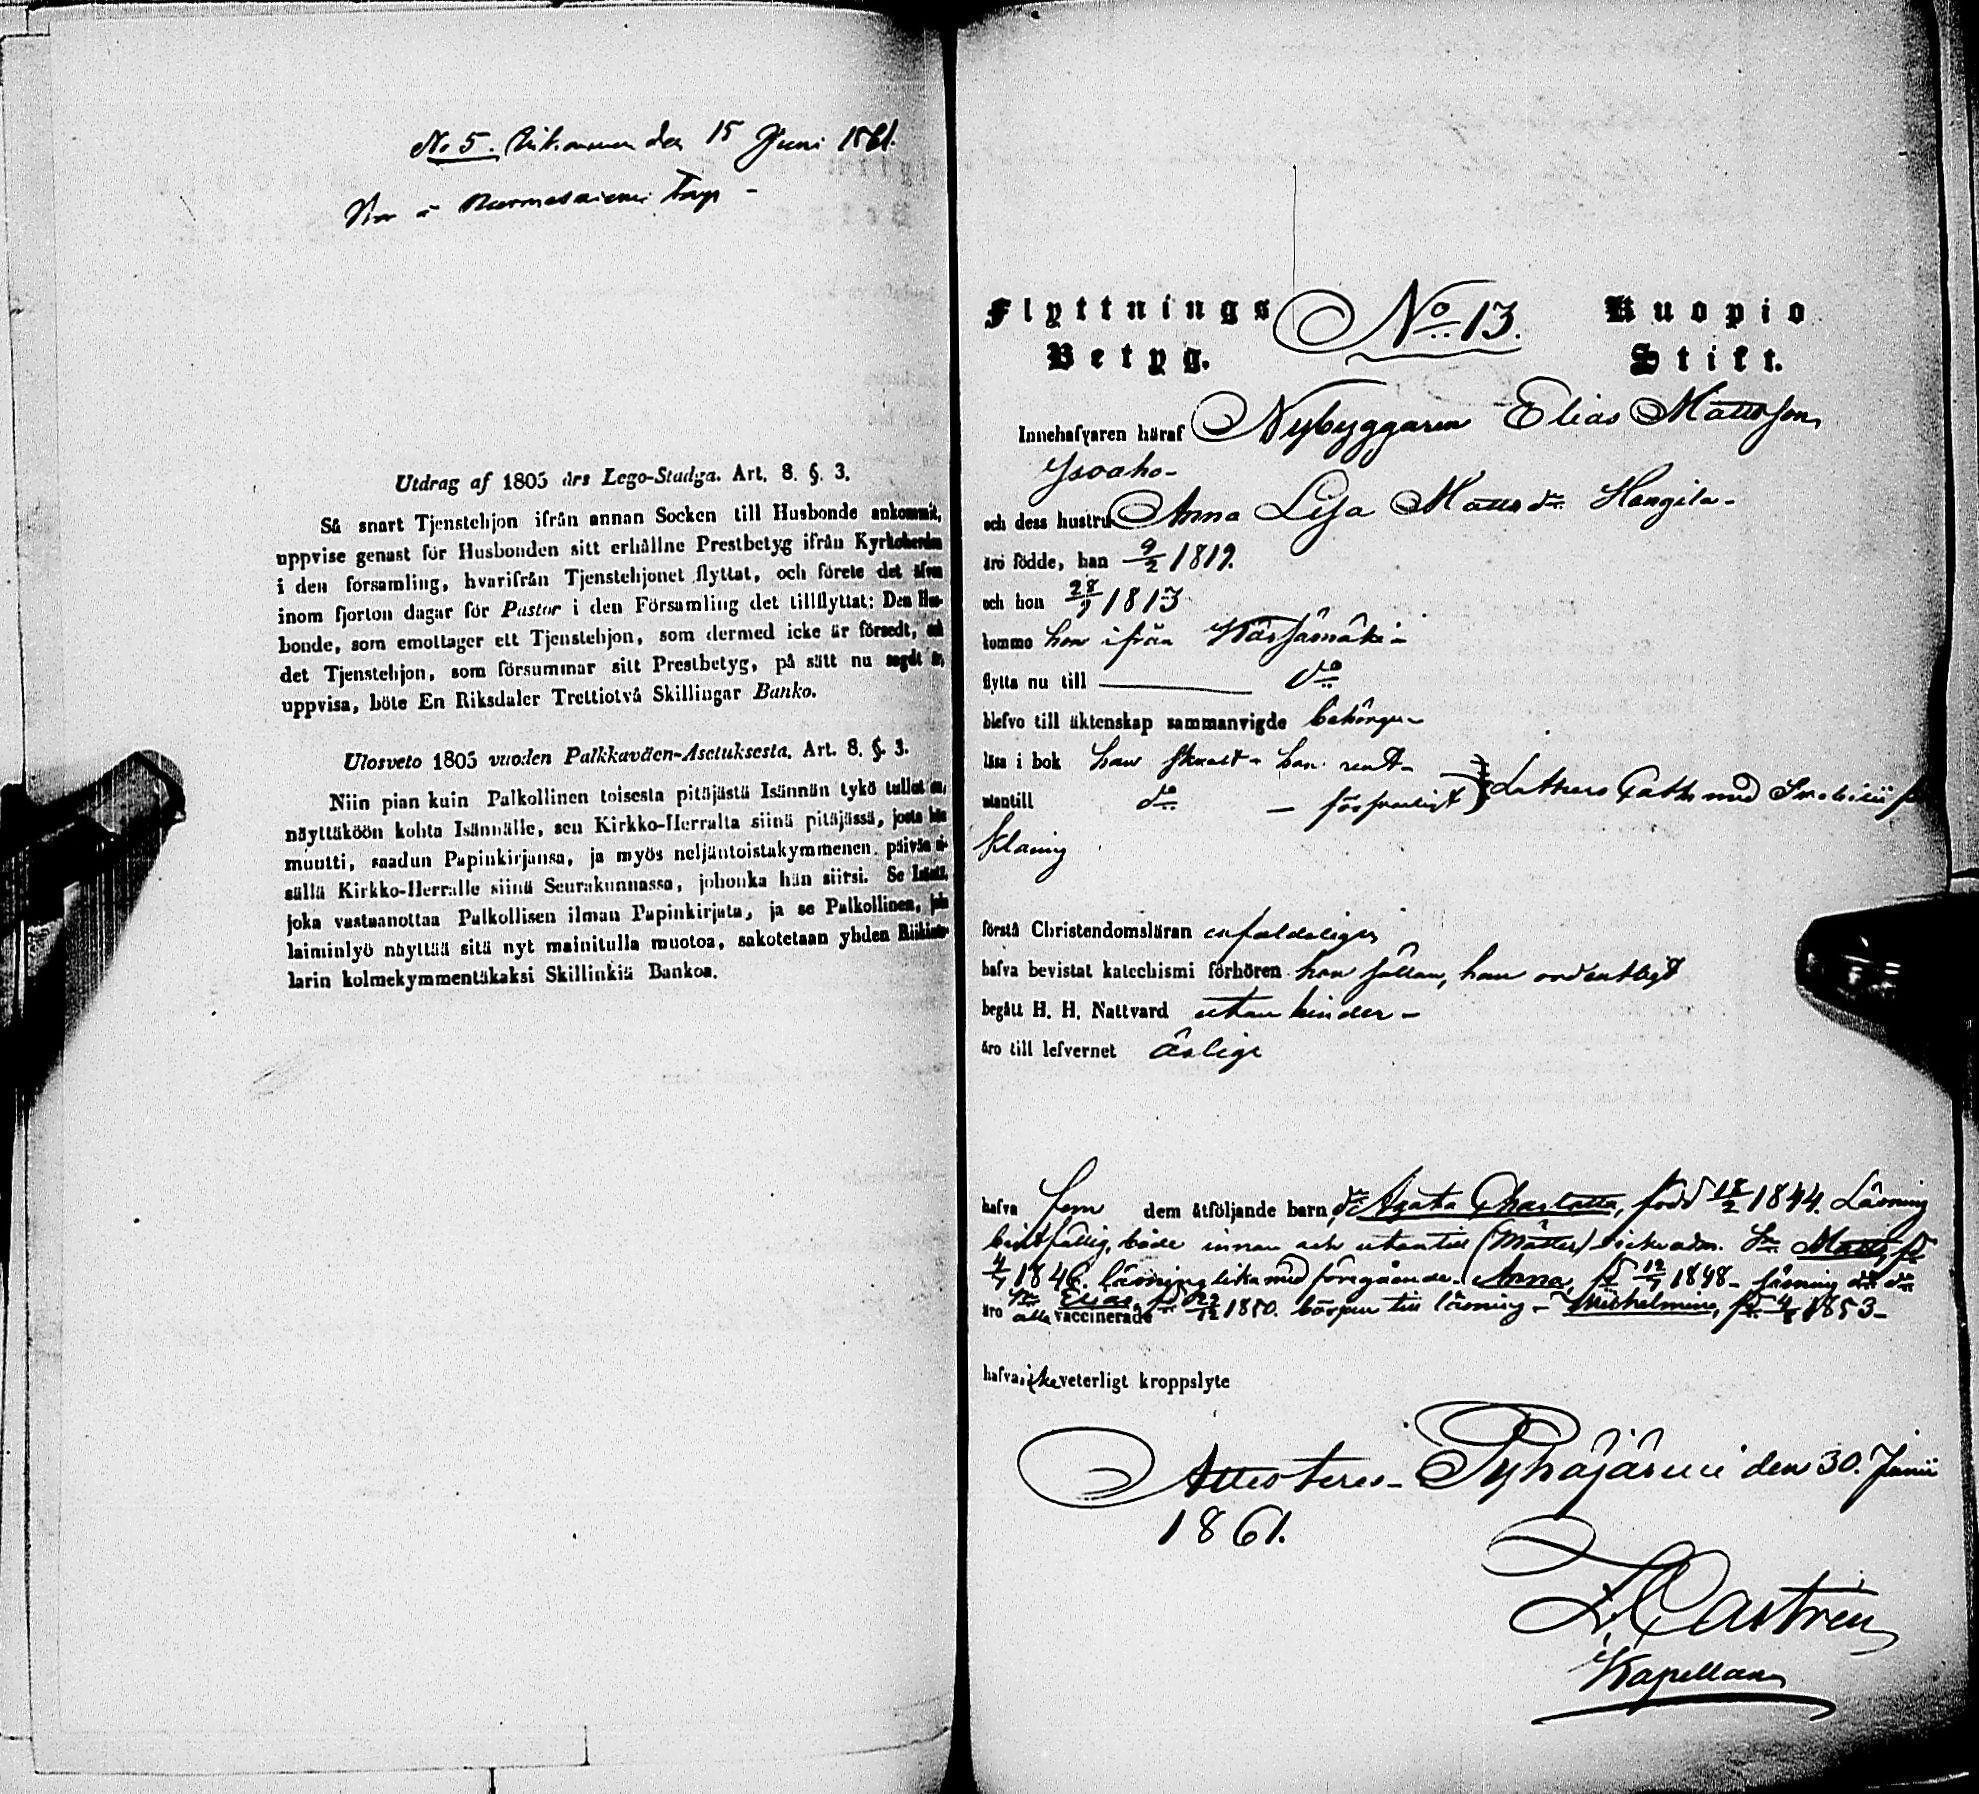 No 5. Ank. den 15 Juni 1861.
Utdrag af 1805 års Lego-Stadga. Art. 8. §. 3.
Så snart Tjenstehjon ifrån annan Socken till Husbonde ankommit,
uppvise genast för Husbonden sitt erhållne Prestbetyg ifrån Kyrkoherden
i den församling, hvarifrån Tjenstehjonet flyttat, och förete det äfven
inom fjorton dagar för Pastor i den Församling det tillflyttat: Den Hus-
bonde, som emottager ett Tjenstehjon, som dermed icke är försedt, och
det Tjenstehjon, som försummar sitt Prestbetyg, på sätt nu sagdt är,
uppvisa, böte En Riksdaler Trettiotvå Skillingar Banko.
Ulosveto 1805 vuoden Palkkaväen-Asetuksesta. Art. 8. §. 3.
Niin pian kuin Palkollinen toisesta pitäjästä Isännän tykö tullut on,
näyttäköön kohta Isännälle, sen Kirkko-Herralta siinä pitäjässä, josta hän
muutti, saadun Papinkirjansa, ja myös neljäntoistakymmenen päivän si-
sällä Kirkko-Herralle siinä Seurakunnassa, johonka hän siirsi. Se Isäntä,
joka vastaanottaa Palkollisen ilman Papinkirjata, ja se Palkollinen, joka
laiminlyö näyttää sitä nyt mainitulla muotoa, sakotetaan yhden Riikinta-
larin kolmekymmentäkaksi Skillinkiä Bankoa.
Flyttnings No 13. Kuopio
Betyg. Stift.
Innehafvaren häraf Nybyggaren Elias Mattsson
Isoaho
och dess hustru Anna Lisa Mattsdr Hangila
äro födde, han 9/2 1819.
och hon 28/9 1813
kommo hon ifrån Kärsämäki
flytta nu till do
blefvo till äktenskap sammanvigde behörigen
läsa i bok han hon rent
utantill do försvarligt Lutheri Cath. med Svebilii för
klaring
förstå Christendomsläran enfaldeligen
hafva bevistat katechismi förhören han sällan, hon ordentligt
begått H. H. Nattvard utan hinder
äro till lefvernet ärlige
hafva fem dem åtföljande barn, dr Agata Charlotta, född 18/2 1844. Läsning
både innan och utantill Sn Matts, fd
4/7 1846. läsning lika med föregående. Anna, fd 12/7 1848 läsning do do
Sn Elias, fd 29/12 1850. början till läsning Wilhelmina, fd 4/8 1853
äro alla vaccinerade
hafva icke veterligt kroppslyte
Attesteras Pyhäjärvi den 30. Junii
1861.
Castrén
Kapellan